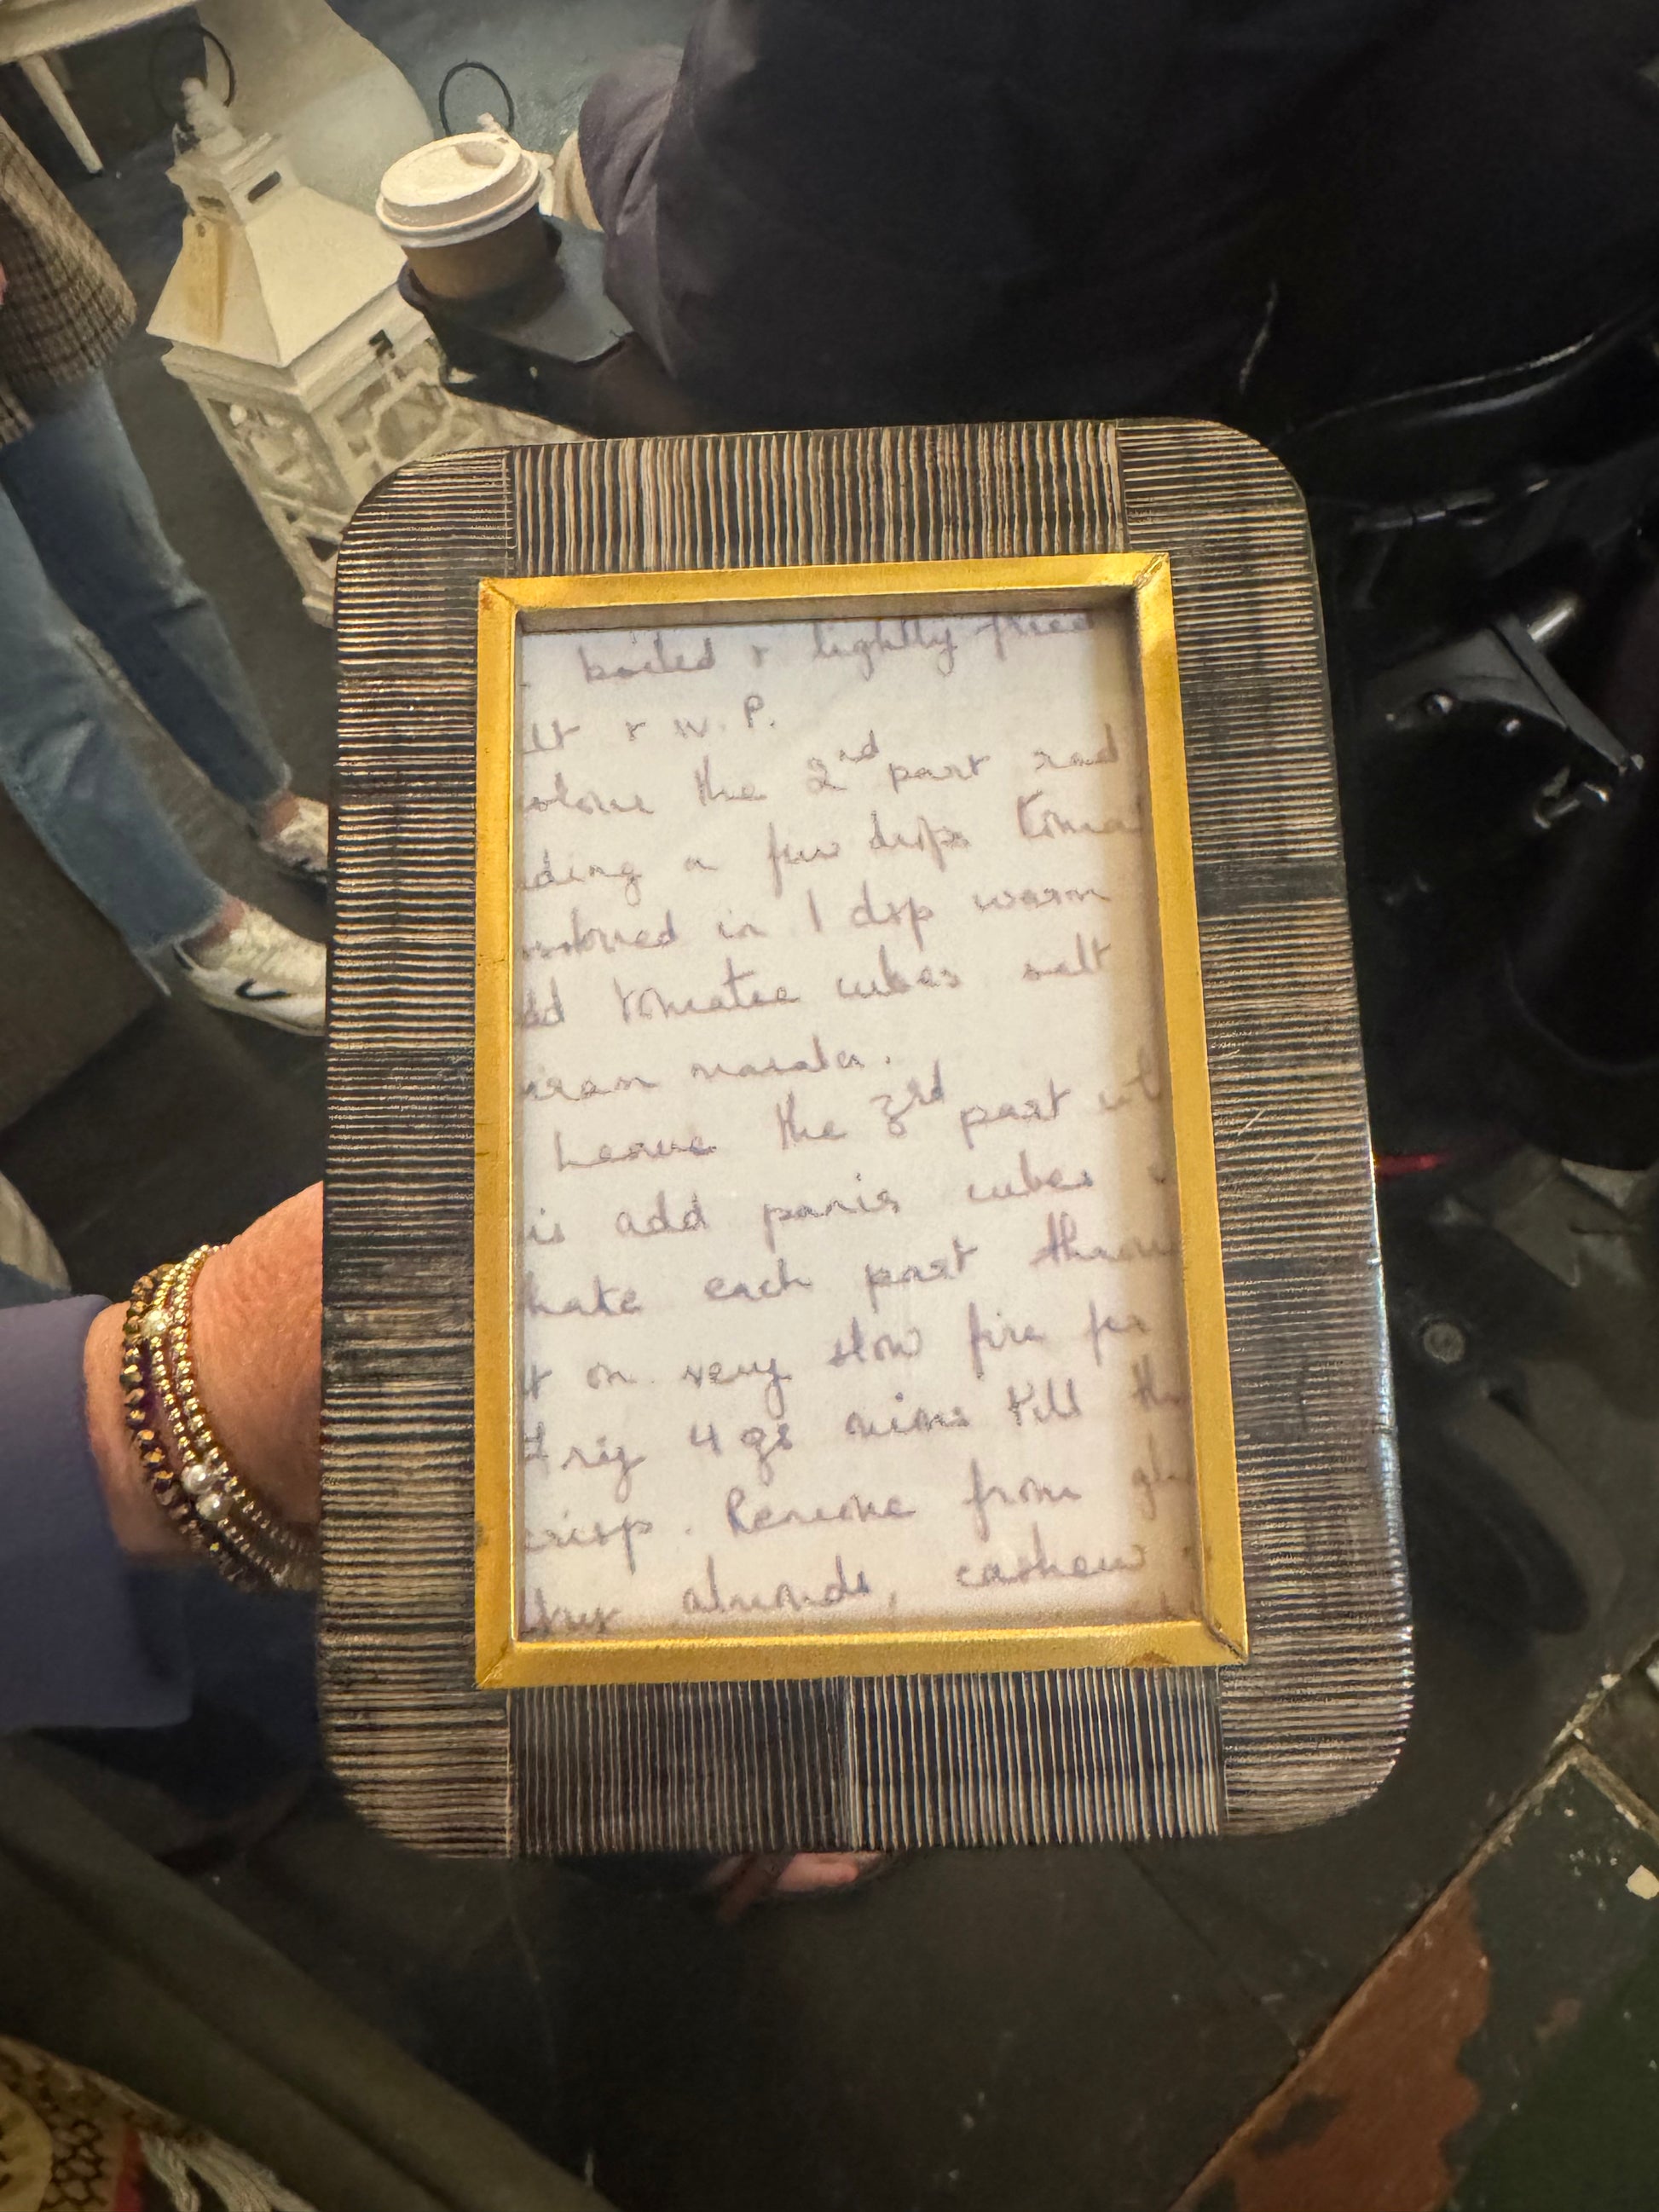 boiled & lightly fried
lt & W.P.
olour the 2nd part red
ding a few drops toma
in 1 dsp warm
dd tomatoe cubes salt
masala.
Leave the 3rd part
is add panir cubes
hake each part
t on very slow fire for
try 4 gs mins till th
crisp. Remove from
almonds, cashew